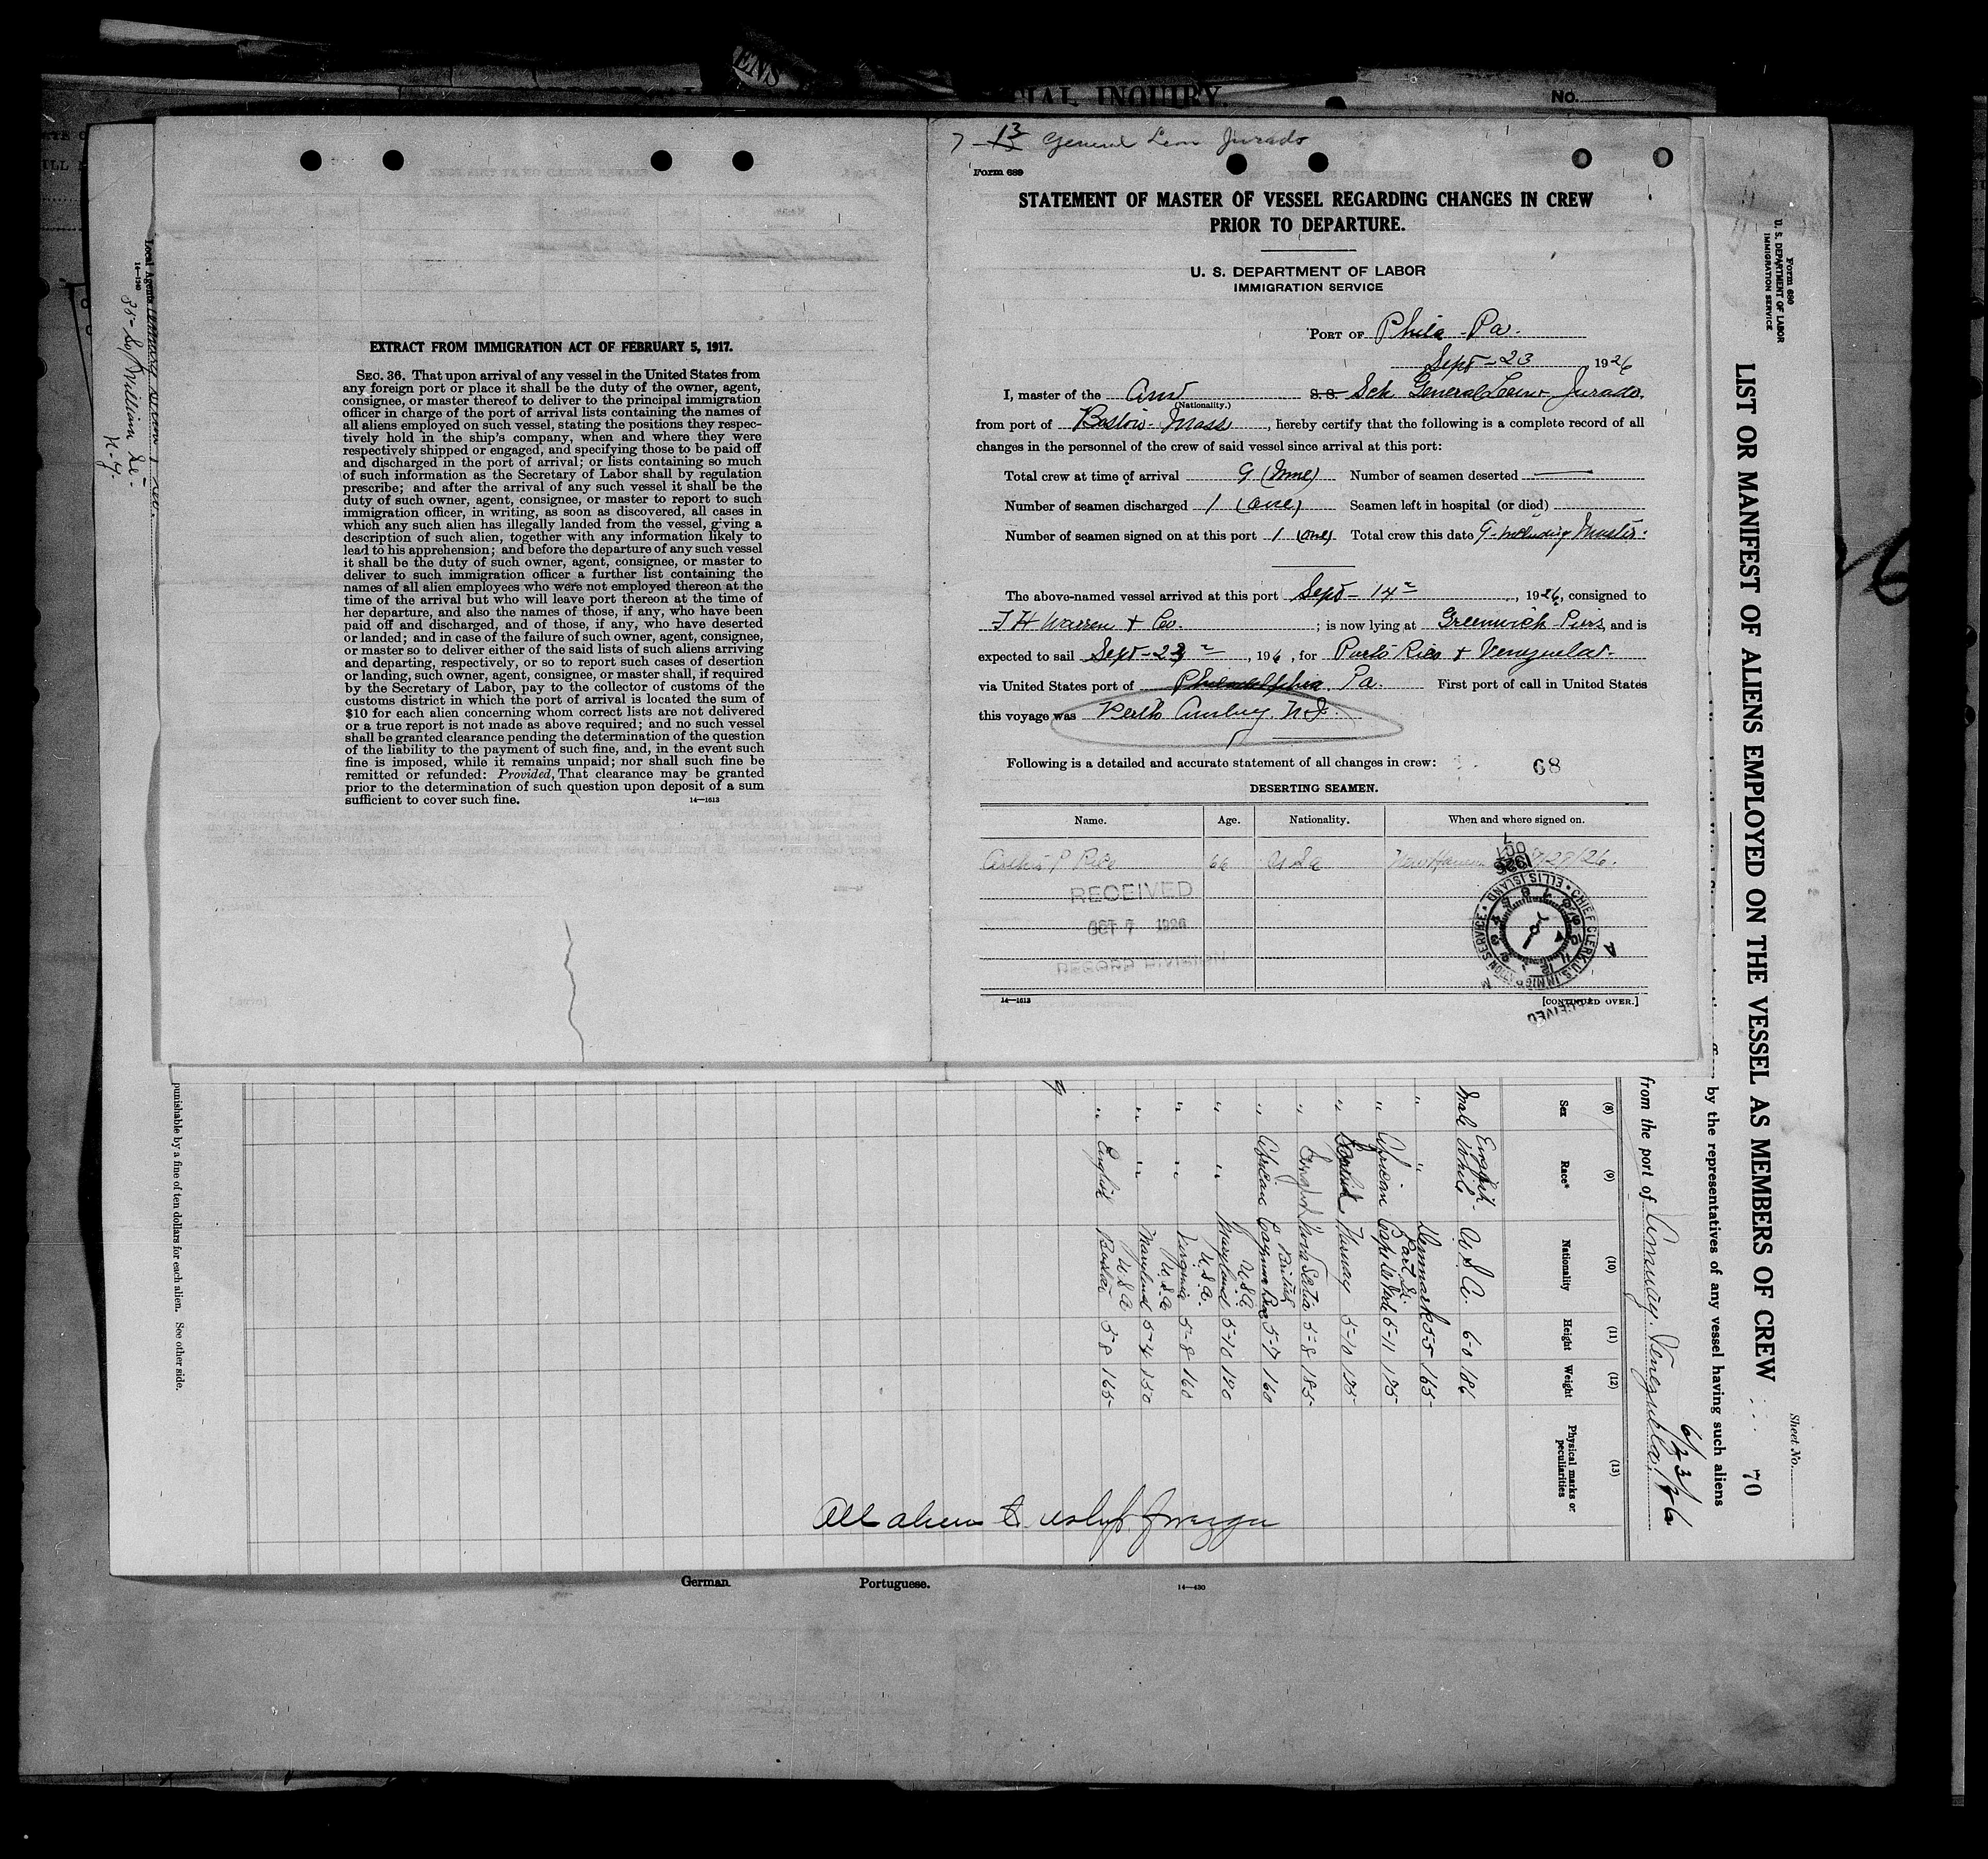 CIAL INQUIRY.
No.
ENS
Local Agents
14—1240
38 So William St.
N-Y.
EXTRACT FROM IMMIGRATION ACT OF FEBRUARY 5, 1917.
SEC. 36. That upon arrival of any vessel in the United States from
any foreign port or place it shall be the duty of the owner, agent,
consignee, or master thereof to deliver to the principal immigration
officer in charge of the port of arrival lists containing the names of
all aliens employed on such vessel, stating the positions they respec-
tively hold in the ship's company, when and where they were
respectively shipped or engaged, and specifying those to be paid off
and discharged in the port of arrival; or lists containing so much
of such information as the Secretary of Labor shall by regulation
prescribe; and after the arrival of any such vessel it shall be the
duty of such owner, agent, consignee, or master to report to such
immigration officer, in writing, as soon as discovered, all cases in
which any such alien has illegally landed from the vessel, giving a
description of such alien, together with any information likely to
lead to his apprehension; and before the departure of any such vessel
it shall be the duty of such owner, agent, consignee, or master to
deliver to such immigration officer a further list containing the
names of all alien employees who were not employed thereon at the
time of the arrival but who will leave port thereon at the time of
her departure, and also the names of those, if any, who have been
paid off and discharged, and of those, if any, who have deserted
or landed; and in case of the failure of such owner, agent, consignee,
or master so to deliver either of the said lists of such aliens arriving
and departing, respectively, or so to report such cases of desertion
or landing, such owner, agent, consignee, or master, shall, if required
by the Secretary of Labor, pay to the collector of customs of the
customs district in which the port of arrival is located the sum of
$10 for each alien concerning whom correct lists are not delivered
or a true report is not made as above required; and no such vessel
shall be granted clearance pending the determination of the question
of the liability to the payment of such fine, and, in the event such
fine is imposed, while it remains unpaid; nor shall such fine be
remitted or refunded: Provided, That clearance may be granted
prior to the determination of such question upon deposit of a sum
sufficient to cover such fine.
14—1613
7 - 13 General Leon Jurado
Form 689
STATEMENT OF MASTER OF VESSEL REGARDING CHANGES IN CREW
PRIOR TO DEPARTURE.
U. S. DEPARTMENT OF LABOR
IMMIGRATION SERVICE
PORT OF Phila - Pa.
Sept - 23 1926
I, master of the Am S. S. Sch General Leon Jurado,
(Nationality.)
from port of Boston - Mass, hereby certify that the following is a complete record of all
changes in the personnel of the crew of said vessel since arrival at this port:
Total crew at time of arrival 9 (Nine) Number of seamen deserted
Number of seamen discharged 1 (one) Seamen left in hospital (or died)
Number of seamen signed on at this port 1 (one) Total crew this date 9 - including Master.
The above-named vessel arrived at this port Sept - 14, 1926, consigned to
J H Warren & Co. ; is now lying at Greenwich Piers, and is
expected to sail Sept - 23, 196, for Puerto Rico & Venezuela.
via United States port of Philadelphia Pa. First port of call in United States
this voyage was Perth Amboy. N.J.
Following is a detailed and accurate statement of all changes in crew: 68
DESERTING SEAMEN.
Name. Age. Nationality. When and where signed on.
P Rice 66 U S A New Haven 26.
RECEIVED
OCT 7 1926
RECORD DIVISION
OCT 7 1926
CHIEF CLERK, U.S. IMMIGRATION SERVICE • ELLIS ISLAND •
RECEIVED
14—1613
[CONTINUED OVER.]
Form 689
U. S. DEPARTMENT OF LABOR
IMMIGRATION SERVICE
Sheet No.
LIST OR MANIFEST OF ALIENS EMPLOYED ON THE VESSEL AS MEMBERS OF CREW 70
by the representatives of any vessel having such aliens
from the port of Amuay. Venezuela.
(8) (9) (10) (11) (12) (13)
Sex Race* Nationality Height Weight Physical marks or peculiarities
Male English White U S A. 6-0 186
" " Denmark 5-5 165
" African Port. Cape d Verd 5-11 175
" Norway 5-10 175
" Nova Scotia 5-8 185
" African British 5-7 160
" " U.S.A Maryland 5-10 190
" " U.S.A. Virginia 5-8 160
" " U.S.A Maryland 5-4 150
" English U.S.A Boston 5-8 165
All aliens to foreign
punishable by a fine of ten dollars for each alien. See other side.
German Portuguese. 14—430